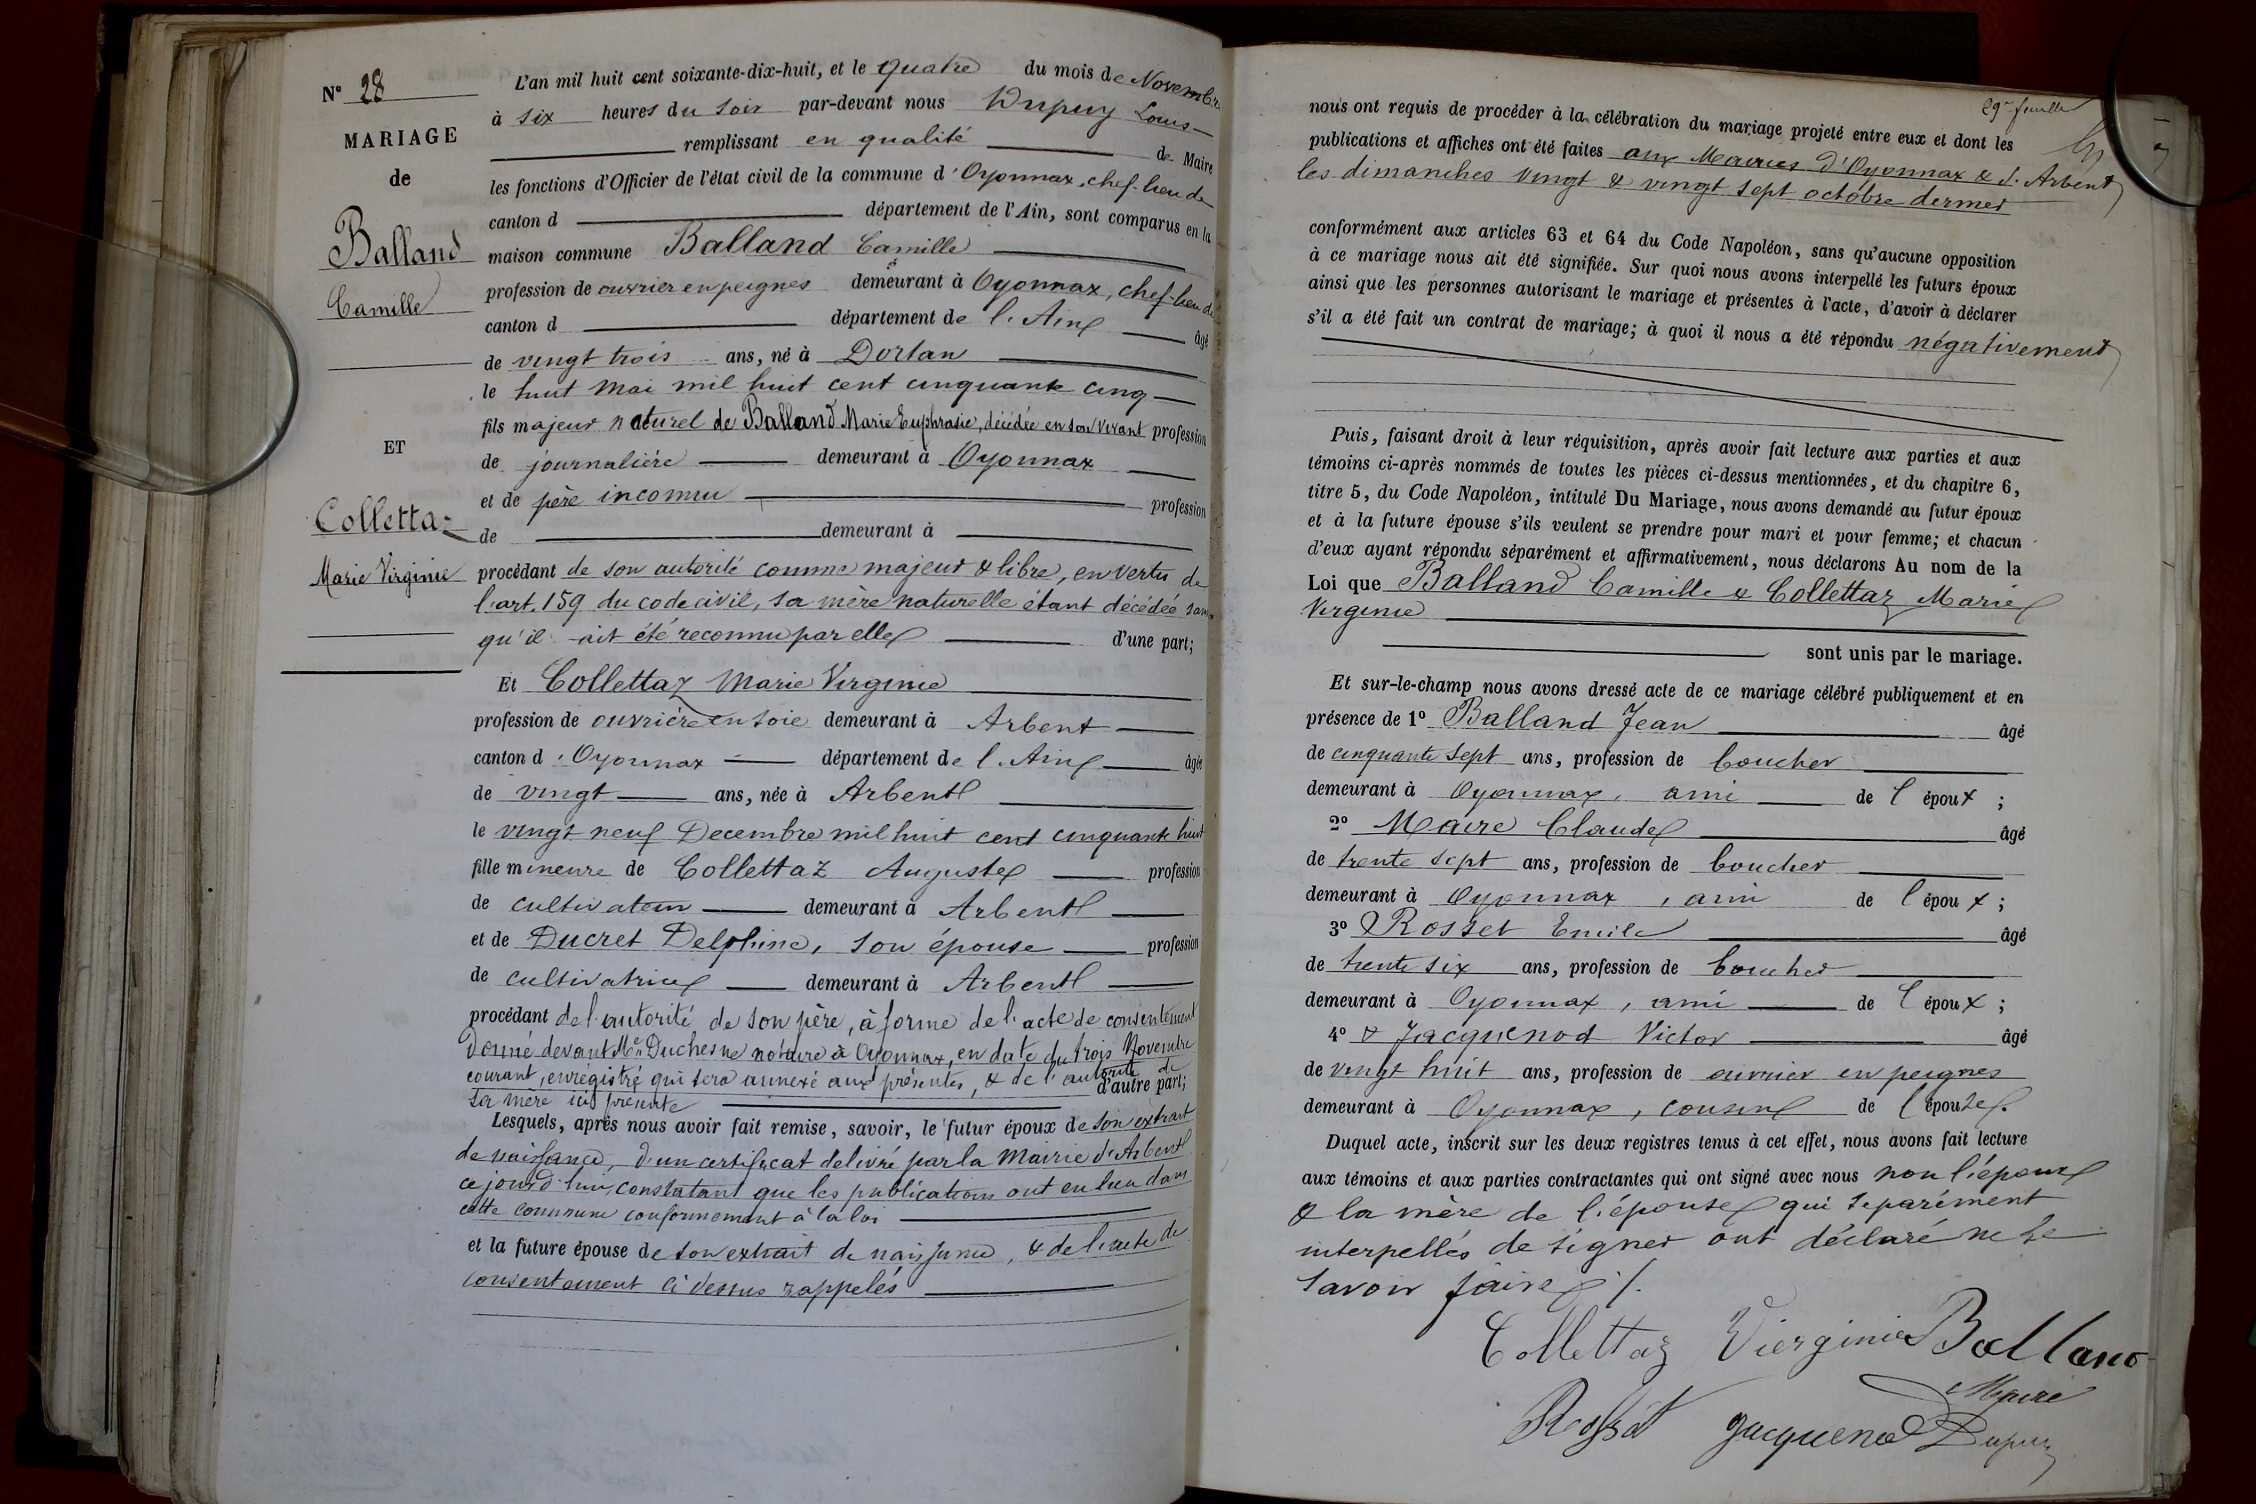 N° 28
MARIAGE
de
Balland
Camille
ET
Collettaz
Marie Virginie
L'an mil huit cent soixante-dix-huit, et le quatre du mois de Novembre
à six heures du soir par-devant nous Dupuy Louis
remplissant en qualité de Maire
les fonctions d'Officier de l'état civil de la commune d'Oyonnax, chef-lieu de
canton d département de l'Ain, sont comparus en la
maison commune Balland Camille
profession de ouvrier en peignes demeurant à Oyonnax, chef-lieu de
canton d département de l'Ain âgé
de vingt trois ans, né à Dortan
le huit Mai mil huit cent cinquante cinq
fils majeur naturel de Balland Marie Euphrasie, décédée en son vivant profession
de journalière demeurant à Oyonnax
et de père inconnu profession
de demeurant à
procédant de son autorité comme majeur & libre, en vertu de
l'art. 159 du code civil, sa mère naturelle étant décédée sans
qu'il ait été reconnu par elle d'une part;
Et Collettaz Marie Virginie
profession de ouvrière en soie demeurant à Arbent
canton d'Oyonnax département de l'Ain âgée
de vingt ans, née à Arbent
le vingt neuf Decembre mil huit cent cinquante huit
fille mineure de Collettaz Auguste profession
de cultivateur demeurant à Arbent
et de Ducret Delphine, son épouse profession
de cultivatrice demeurant à Arbent
procédant de l'autorité de son père, à forme de l'acte de consentement
donné devant Me Duchesne notaire à Oyonnax, en date du trois Novembre
courant, enregistré qui sera annexé aux présentes, & de l'autorité de
sa mère ici présente d'autre part;
Lesquels, après nous avoir fait remise, savoir, le futur époux de son extrait
de naissance, d'un certificat delivré par la Mairie d'Arbent
ce jourd'hui, constatant que les publications ont eu lieu dans
cette commune conformement à la loi
et la future épouse de son extrait de naissance, & de l'acte de
consentement ci dessus rappelés
29e feuille
nous ont requis de procéder à la célébration du mariage projeté entre eux et dont les
publications et affiches ont été faites aux Mairies d'Oyonnax & d'Arbent
les dimanches vingt & vingt sept octobre dernier
conformément aux articles 63 et 64 du Code Napoléon, sans qu'aucune opposition
à ce mariage nous ait été signifiée. Sur quoi nous avons interpellé les futurs époux
ainsi que les personnes autorisant le mariage et présentes à l'acte, d'avoir à déclarer
s'il a été fait un contrat de mariage; à quoi il nous a été répondu négativement
Puis, faisant droit à leur réquisition, après avoir fait lecture aux parties et aux
témoins ci-après nommés de toutes les pièces ci-dessus mentionnées, et du chapitre 6,
titre 5, du Code Napoléon, intitulé Du Mariage, nous avons demandé au futur époux
et à la future épouse s'ils veulent se prendre pour mari et pour femme; et chacun
d'eux ayant répondu séparément et affirmativement, nous déclarons Au nom de la
Loi que Balland Camille & Collettaz Marie
Virginie
sont unis par le mariage.
Et sur-le-champ nous avons dressé acte de ce mariage célébré publiquement et en
présence de 1° Balland Jean âgé
de cinquante sept ans, profession de boucher
demeurant à Oyonnax, ami de l'époux;
2° Maire Claude âgé
de trente sept ans, profession de boucher
demeurant à Oyonnax, ami de l'époux;
3° Rosset Emile âgé
de trente six ans, profession de boucher
demeurant à Oyonnax, ami de l'époux;
4° & Jacquenod Victor âgé
de vingt huit ans, profession de ouvrier en peignes
demeurant à Oyonnax, cousin de l'épouse.
Duquel acte, inscrit sur les deux registres tenus à cet effet, nous avons fait lecture
aux témoins et aux parties contractantes qui ont signé avec nous non l'époux
& la mère de l'épouse qui séparément
interpellés de signer ont déclaré ne le
savoir faire ./.
Collettaz Vierginie Balland
Maire
Rosset Jacquenod Dupuy